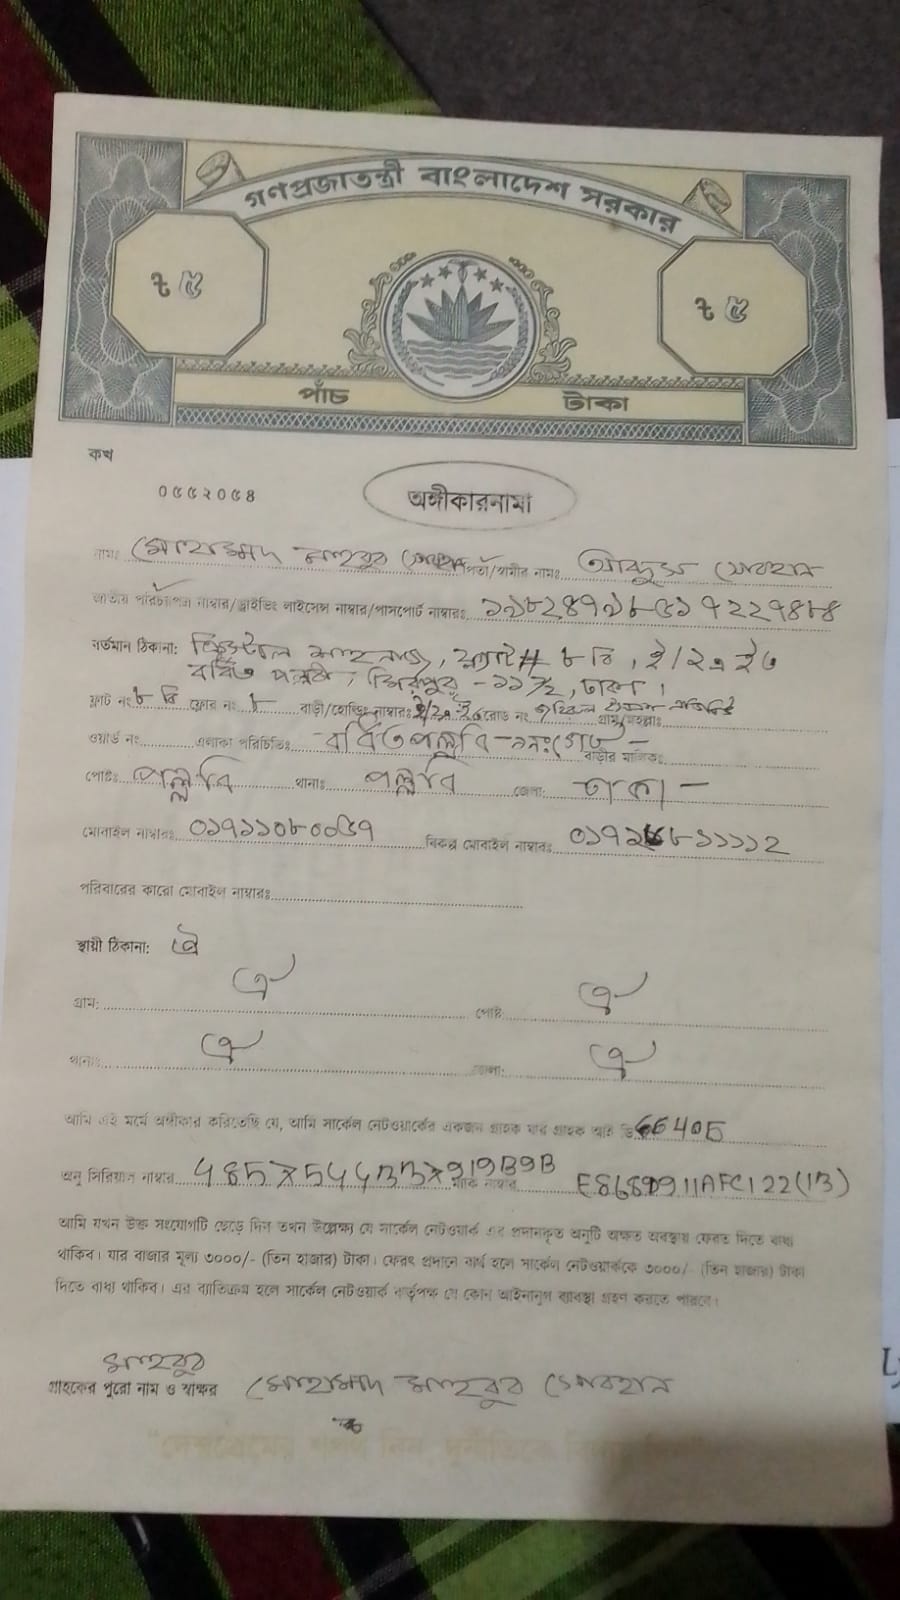 গণপ্রজাতন্ত্রী বাংলাদেশ সরকার
৳ ৫
৳ ৫
পাঁচ টাকা
কখ
০৫৫২০৫৪
অঙ্গীকারনামা
নামঃ মোহাম্মদ মাহবুব সোবহান পিতা/স্বামীর নামঃ আব্দুস সোবহান
জাতীয় পরিচয়পত্র নাম্বার/ড্রাইভিং লাইসেন্স নাম্বার/পাসপোর্ট নাম্বারঃ
বর্তমান ঠিকানা: ক্রিস্টাল শাহনাজ, ফ্ল্যাট# ৮ বি,
বর্ধিত পল্লবী, মিরপুর -১১½, ঢাকা।
ফ্লাট নং ৮ বি ফ্লোর নং ৮ বাড়ী/হোল্ডিং নাম্বারঃ রোড নং গ্রাম/মহল্লাঃ
ওয়ার্ড নং এলাকা পরিচিতিঃ বর্ধিত পল্লবি-১নং গেট - বাড়ীর মালিকঃ
পোষ্টঃ পল্লবি থানাঃ পল্লবি জেলা: ঢাকা -
মোবাইল নাম্বারঃ ০১৭১১০৮০০৫৭ বিকল্প মোবাইল নাম্বারঃ
পরিবারের কারো মোবাইল নাম্বারঃ
স্থায়ী ঠিকানা: ঐ
গ্রাম: ঐ পোষ্ট ঐ
থানাঃ ঐ জেলা: ঐ
আমি এই মর্মে অঙ্গীকার করিতেছি যে, আমি সার্কেল নেটওয়ার্কের একজন গ্রাহক যার গ্রাহক আই ডি 66405
অনু সিরিয়াল নাম্বার ম্যাক নাম্বার
আমি যখন উক্ত সংযোগটি ছেড়ে দিব তখন উল্লেক্ষ্য যে সার্কেল নেটওয়ার্ক এর প্রদানকৃত অনুটি অক্ষত অবস্থায় ফেরত দিতে বাধ্য
থাকিব। যার বাজার মূল্য ৩০০০/- (তিন হাজার) টাকা। ফেরৎ প্রদানে ব্যর্থ হলে সার্কেল নেটওয়ার্ককে ৩০০০/- (তিন হাজার) টাকা
দিতে বাধ্য থাকিব। এর ব্যাতিক্রম হলে সার্কেল নেটওয়ার্ক কর্তৃপক্ষ যে কোন আইনানুগ ব্যাবস্থা গ্রহণ করতে পারবে।
মাহবুব
গ্রাহকের পুরো নাম ও স্বাক্ষর মোহাম্মদ মাহবুব সোবহান